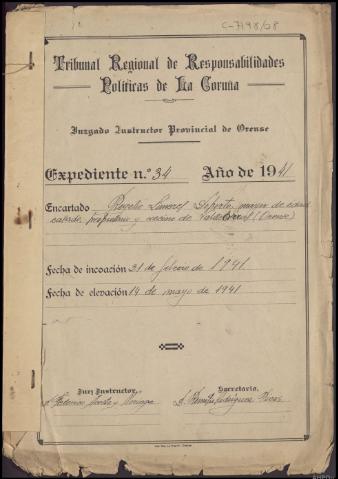 C-7198/68
Tribunal Regional de Responsabilidades
Políticas de La Coruña
Juzgado Instructor Provincial de Orense
Expediente n.º 34 Año de 1941
Encartado Linares mayor de edad
casado, propietario y vecino de (Orense)
Fecha de incoación 31 de febrero de 1941.
Fecha de elevación 14 de mayo de 1941
Juez Instructor, Secretario,
Rodríguez